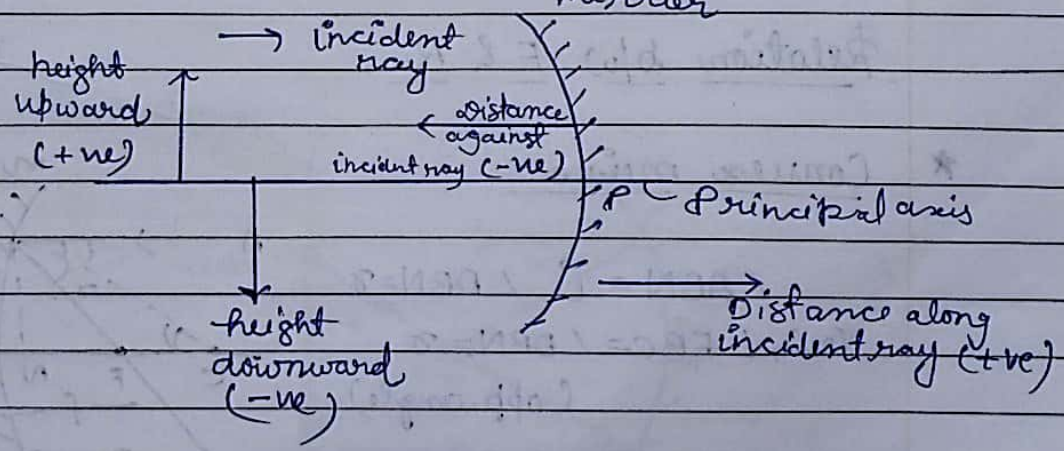 → incident
ray
height
upward
(+ve)
← Distance
against
incident ray (-ve)
P
Principal axis
height
downward
(-ve)
Distance along
incident ray (+ve)